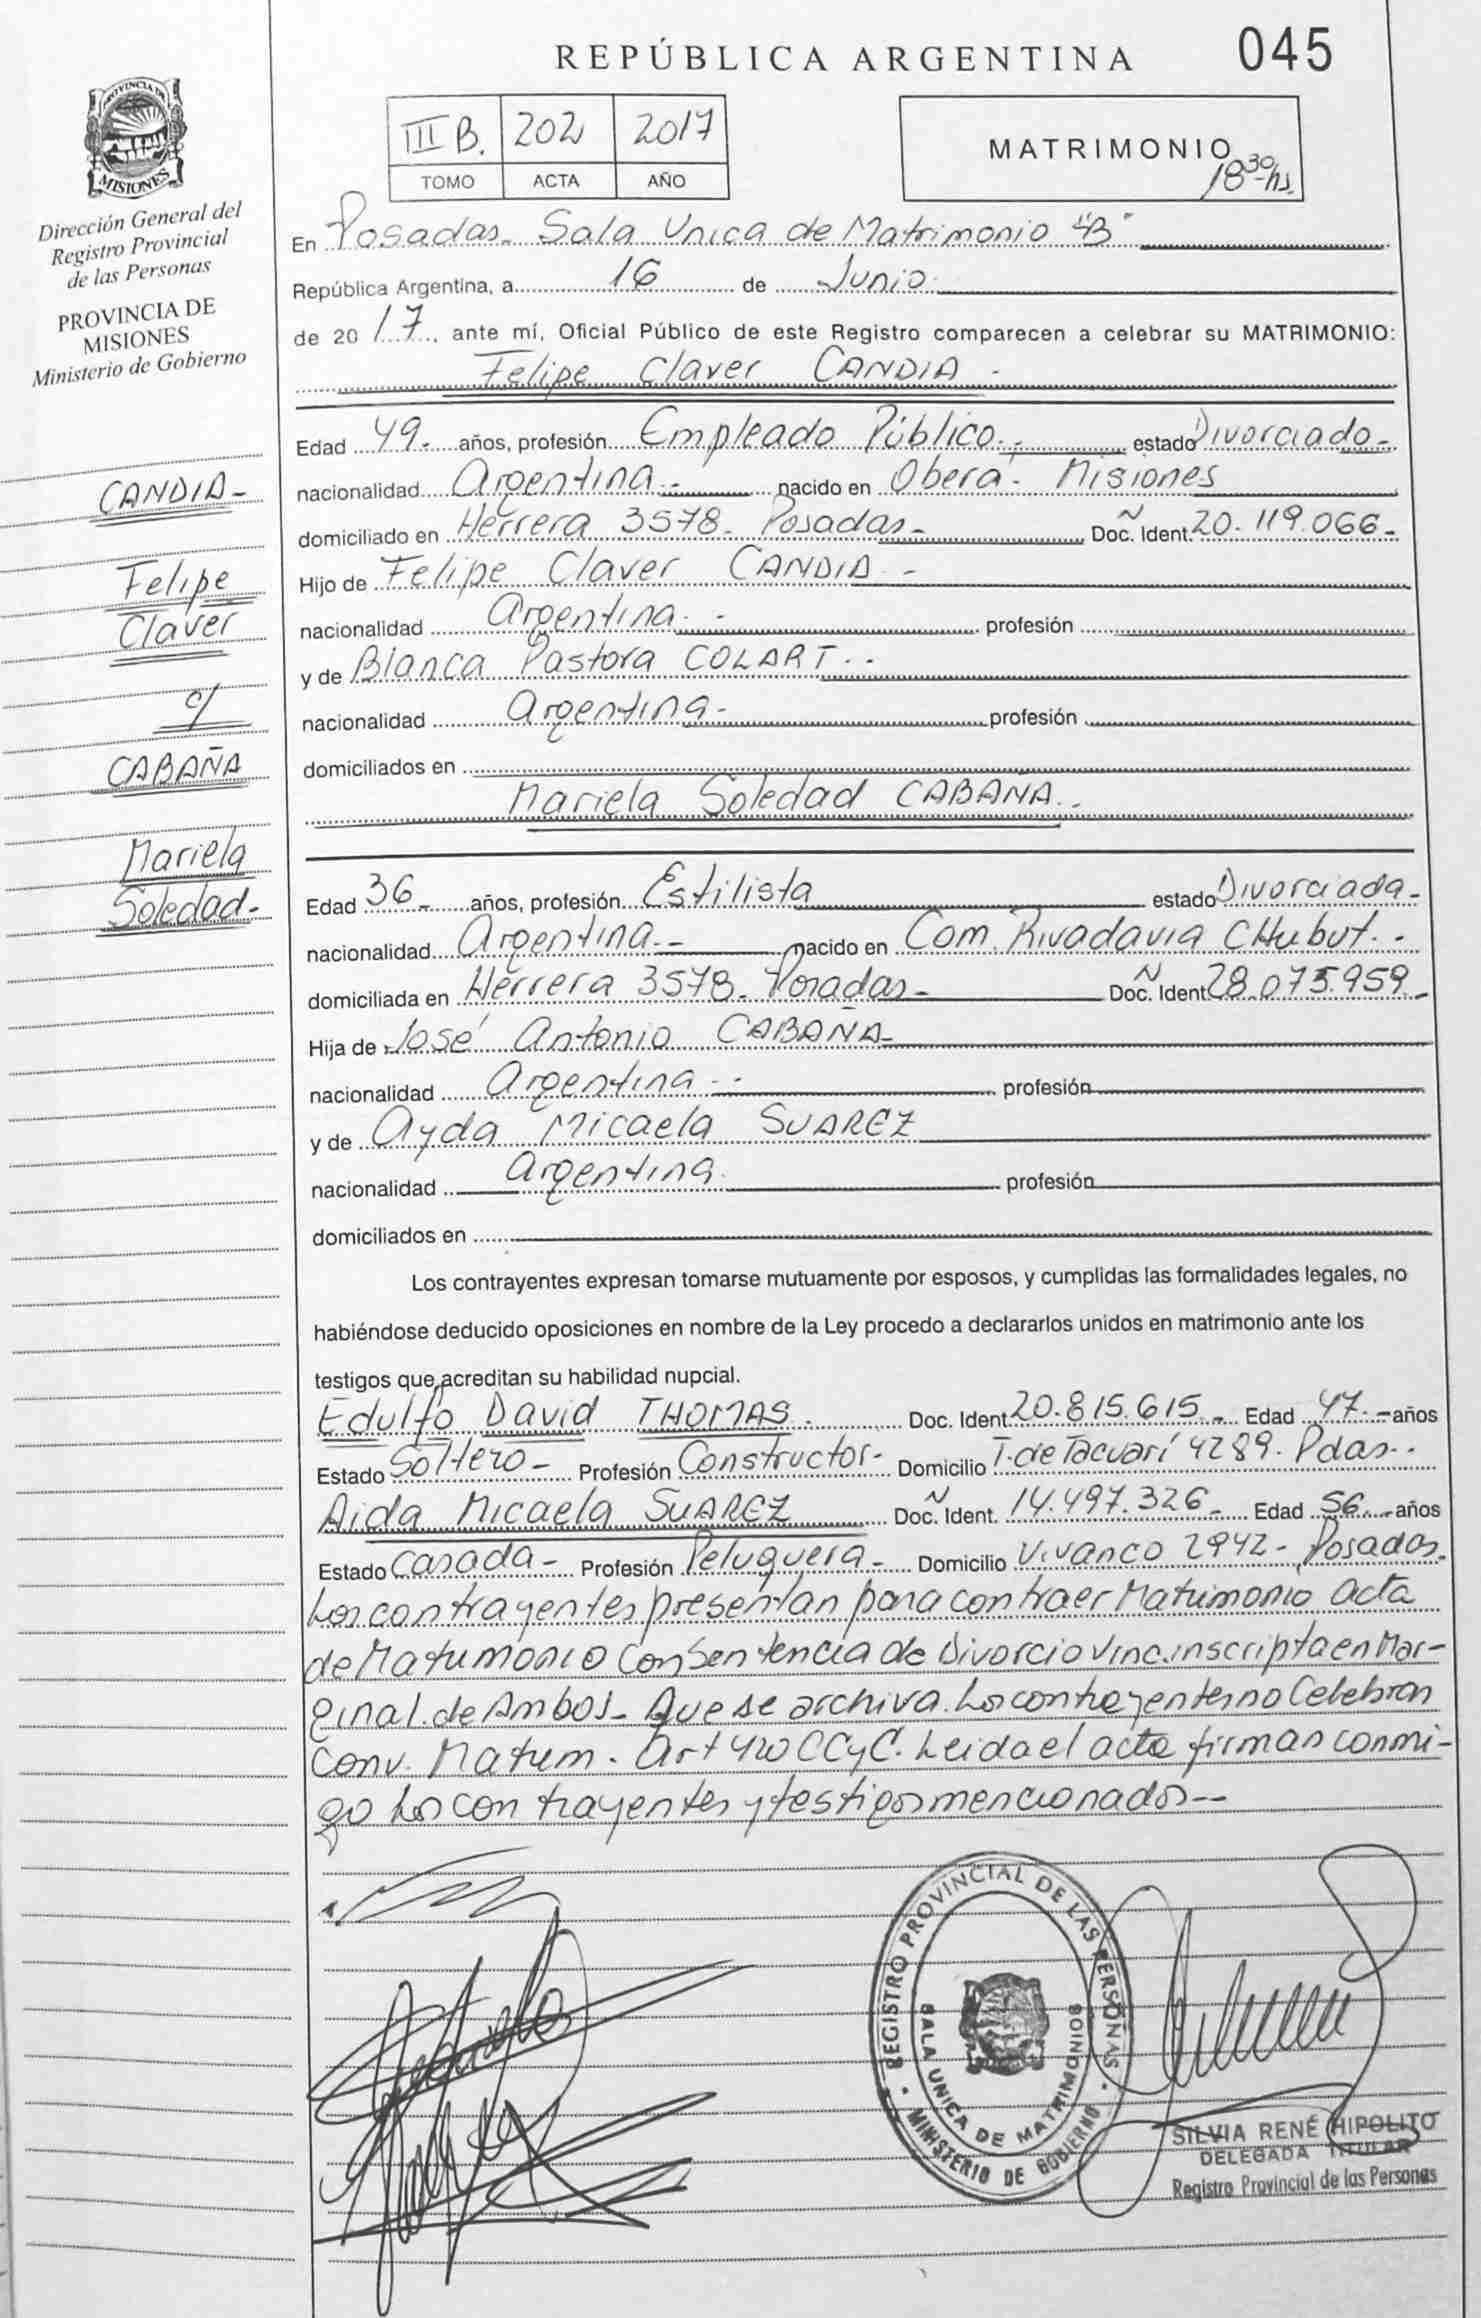 REPÚBLICA ARGENTINA 045
III B. 202 2017
TOMO ACTA AÑO
MATRIMONIO
18 30 hs.
PROVINCIA DE
MISIONES
Dirección General del
Registro Provincial
de las Personas
PROVINCIA DE
MISIONES
Ministerio de Gobierno
CANDIA-
Felipe
Claver
c/
CABAÑA
Mariela
Soledad-
En Posadas. Sala Unica de Matrimonio "B"
República Argentina, a 16 de Junio.
de 20 17, ante mí, Oficial Público de este Registro comparecen a celebrar su MATRIMONIO:
Felipe Claver CANDIA -
Edad 49- años, profesión Empleado Público. estado Divorciado-
nacionalidad Argentina.- nacido en Oberá. Misiones
domiciliado en Herrera 3578. Posadas- Doc. Ident. 20.119.066-
Hijo de Felipe Claver CANDIA -
nacionalidad Argentina. - profesión
y de Blanca Pastora COLART..
nacionalidad Argentina- profesión
domiciliados en
Mariela Soledad CABAÑA..
Edad 36- años, profesión Estilista estado Divorciada-
nacionalidad Argentina.- nacido en Com. Rivadavia CHubut. -
domiciliada en Herrera 3578- Posadas- Doc. Ident. 28.075.959-
Hija de José Antonio CABAÑA-
nacionalidad Argentina - - profesión
y de Ayda Micaela SUAREZ
nacionalidad Argentina. profesión
domiciliados en
Los contrayentes expresan tomarse mutuamente por esposos, y cumplidas las formalidades legales, no
habiéndose deducido oposiciones en nombre de la Ley procedo a declararlos unidos en matrimonio ante los
testigos que acreditan su habilidad nupcial.
Edulfo David THOMAS. Doc. Ident. 20.815.615.- Edad 47.- años
Estado Soltero- Profesión Constructor- Domicilio T. de Tacuarí 4289. Pdas..
Aida Micaela SUAREZ Doc. Ident. 14.497.326- Edad 56.- años
Estado Casada- Profesión Peluquera- Domicilio Vivanco 2942- Posadas.
Los contrayentes presentan para contraer Matrimonio acta
de Matrimonio Con Sentencia de Divorcio Vinc. inscripta en Mar-
ginal de Ambos- Que se archiva. Los contrayentes no Celebran
Conv. Matrim. Art 420 CCyC. Leida el acta firman conmi-
go Los contrayentes y testigos mencionados--
REGISTRO PROVINCIAL DE LAS PERSONAS
SALA UNICA DE MATRIMONIOS
MINISTERIO DE GOBIERNO
SILVIA RENÉ HIPOLITO
DELEGADA TITULAR
Registro Provincial de las Personas